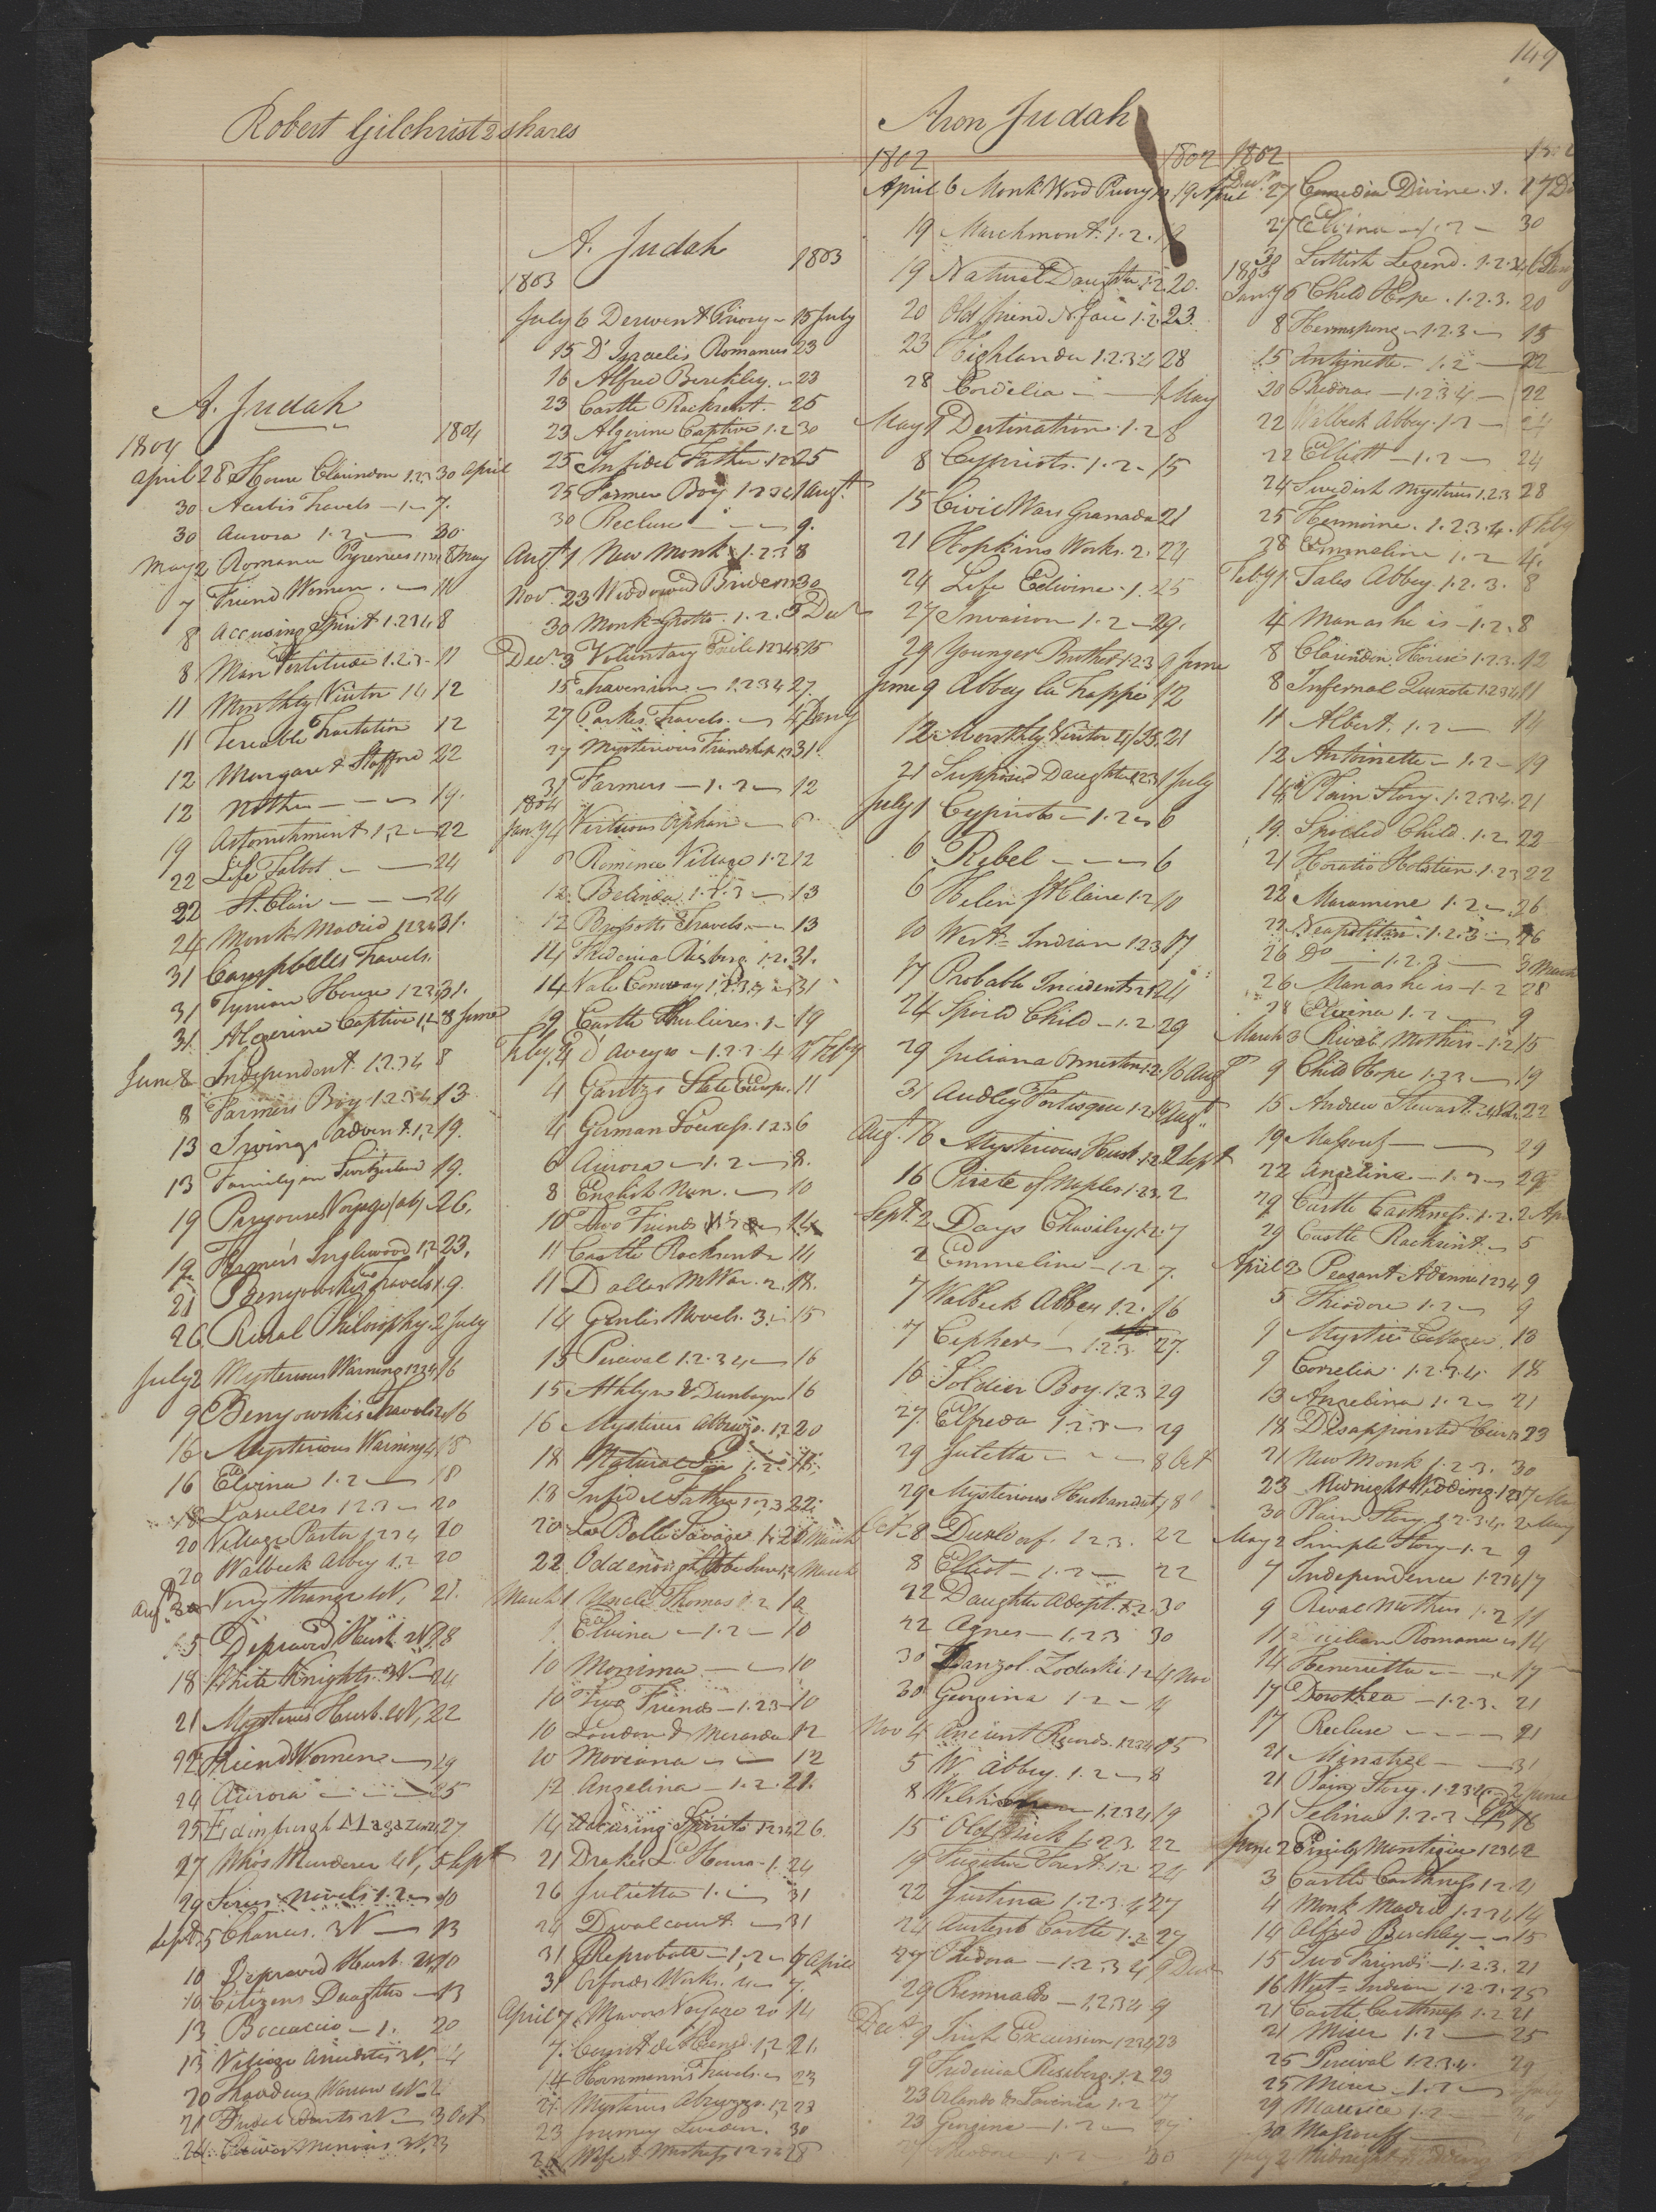 149
Robert Gilchrist 2 shares
A. Judah
1804 1804
April 28 House Clarindon 1.2.3 30 April
30 Travels — 1 — 7.
30 Aurora 1.2 — 30
May 2 Romance Pyrenees 8 May
7 Friend Women. — 11
8 Accusing Spirit 1.2.3.4 8
8 Man Fortitude 1.2.3. 11
11 Monthly Visitor 14 12
11 12
12 Margaret Stafford 22
12 — — — 19.
19 Astonishment 1,2 — 22
22 Life Talbot — — 24
22 St. Clair — — — 24
24 Monk Madrid 1234 31.
31 Campbells Travels.
31 Tynian House 1.2.3 31.
31 Algerine Captive 1,2 8 June
June 8 Independent. 1.2.3.4 8
8 Farmers Boy 1.2.3.4 13
13 Irvings Advent. 1,2 19.
13 Family in Switzerland 19.
19 Voyage 26.
19 Farmers Inglewood 1,2 23.
21 Benyowskis Travels 1. 9.
26 Rural Philosophy. 2 July
July 2 Mysterious Warning 1234 16
9 Benyowskis Travels 2 16
16 Mysterious Warning 4 18
16 Elvina 1.2 — 18
18 Laselles 1.2.3 — 20
20 Village Pastor 1234 20
20 Walbeck Abbey 1.2 20
Augt. Very Strange W, 21.
15 Depraved Husb. 2V 18
18 White Knights. 3V — 24
21 Mysterious Husb. 4V, 22
22 Friend Women — 29
24 Aurora — — 25
25 Edinburgh Magazine 27
27 Who's Murderer 4V, 5 Sept
29 Novels 1.2 — 10
Sept. 5 Chances. 3V — 13
10 Depraved Husb. 10
10 Citizens Daughter — 13
13 Boccaccio — 1. 20
13 Village Anecdotes 3V,
20 Thaddeus Warsaw 4V
3 Oct
A. Judah
1803 1803
July 6 Derwent Priory — 15 July
15 D'Israelis Romances 23
16 Alfred Berckley. — 23
23 Castle Rackrent. 25
23 Algerine Captive 1.2 30
25 Infidel Father. 1.2.3 25
25 Farmer Boy 1.2.3.4 1 Augt.
30 Recluse — — 9.
Augt. 1 New Monk 1.2.3 8
Nov. 23 Widdowed Bride 30
30 Monk Grotto. 1.2. 3 Decr
Decr. 3 Voluntary Exile 12345 15
15 — 1.2.3.4 27.
27 Parkes Travels. — 4 Jany
27 Mysterious Friendship 1.2 31.
31 Farmers — 1.2 — 12
1804
Jany 4 Virtuous Orphan — 8
8 Romance Village 1.2 12
12 Belinda 1.2.3 — 13
12 Brissotts Travels — 13
14 Fredericia Risberg. 1.2. 31.
14 Vale Conway 1.2.3.4 31
19 Castle Thulieres. 1 — 19
Feby. 4 d'Aveyro — 1.2.3.4 11 Feby
4 Gentzs State Europe. 11
4 German 1.2.3 6
6 Aurora — 1.2 — 8.
8 English Nun. — 10
10 Two Friends
11 Castle Rackrent — 14
11 Dallas M War. 2. 18.
14 Genlis Novels. 3. 15
15 Percival 1.2.3.4 — 16
15 Athlyn & Dunbayne 16
16 Mysteries Abruzzo. 1,2 20
18 Natural Son 1.2 18.
18 Infidel Father 1,2,3 22.
20 La Belle Savage 1.2 1 March
22 Odd enough to be sure 1,2 March
March 1 Uncle Thomas 1.2 10
1 Elvina — 1.2 — 10
10 Monima — — 10
10 Two Friends — 1.2.3 — 10
10 Lindor & 12
10 Moreana — — 12
12 Angelina — 1.2. 21.
14 Accusing Spirit 1.2.3.4 26.
21 Drakes L. Hours. 1. 24
26 Julietta 1. — 31
24 Duvalcourt — 31
31 Reprobate — 1,2 — 7 April
31 Orfords Works. 7.
April 7. Mavors Voyages 20 14
7. Count de Hensd. 1,2 21.
14 Hornmanns Travels. — 23
21 Mysteries Abruzzo. 1,2 23
23 Journey Sweden. 30
26 Wife & Mistress 1.2.3.4 28
Aron Judah
1802 1802
April 6 Monk Wood Priory 1.2 19 April
19 Marchmont. 1.2.
19 Natural Daughter 1.2. 20.
20 Old friend N. face 1.2. 23.
23 Highlander 1.2.3.4 28
28 Cordelia — — 1 May
May 1 Destination. 1.2 8
8 Cypriots. 1.2. 15
15 Civil Wars Granada 21
21 Hopkins Works. 2. 24
24 Life Edwine. 1. 25
27 Invasion 1.2 — 29.
29 Younger Brother 1.2.3 9 June
June 9 Abbey La Trappe 12
12 Monthly Visitor 21
21 Supposed Daughter 1.2.3 1 July
July 1 Cypriots — 1.2 — 6
6 Rebel — — — 6
6 Helen St. Claire 1.2 10
10 West-Indian 1.2.3 17
17 Probable Incidents 1.2 24
24 Spoild Child — 1.2. 29
29 Juliana Ormeston 1.2. 16 Augt
31 Audley Fortisque 1.2 16 Augt.
Augt. 16 Mysterious Husb. 1.2. 2 Sept
16 Pirate of Naples 1.2.3. 2
Sept. 2 Days Chivalry 1.2. 7
2 Emmeline — 1.2 7.
7 Walbeck Abbey 1.2. 16
7 Cephers — 1.2.3. 27.
16 Soldier Boy. 1.2.3 29
27. Elfreda 1.2.3 — 29
29 Juletta — — — 8 Oct
29 Mysterious Husband 4, 8
Oct. 8 Dusldorf. 1.2.3. 22
8 Elliot — 1.2 — 22
22 Daughter Adopt. 1.2. 30
22 Agnes — 1.2.3 30
30 Zodaski. 1.2 4 Nov
30 Georgina 1.2 — 4
Nov 4 Ancient Records. 1.2.3.4 15
5 W. Abbey. 1.2 — 8
8 Welsh 1.2.3.4 19
15 Old Nick 1.2.3. 22
19 Fugitive Forest. 1.2 24
22 Justina 1.2.3.4 27
24 Austenb Castle 1.2 27
27 Phedora — 1.2.3.4, 9 Decr
29 Romualdo — 1.2.3.4 9
Decr. 9 Irish Excursion 1.2.3.4 23
9 Fredericia Risberg. 1.2 23
23 Orlando & Lavinia 1.2
23 Georgina — 1.2 —
30
1802
Decr. 27 Comedia Divine. 1.
27 Elvina — 1.2 — 30
30 Scottish Legend. 1.2.3.4 6 Jany
1803
Jany 6 Child Hope. 1.2.3. 20
8 Hermsprong — 1.2.3 — 15
15 Antoinette — 1.2 — 22
20 Phedora — 1.2.3.4 — 22
22 Walbeck Abbey. 1.2 — 24
22 Elliott — 1.2 — 24
24 Swedish Mysteries 1.2.3 28
25 Hermoine. 1.2.3.4. Feby
28 Emmeline 1.2 4.
Feby 1. Sales Abbey. 1.2.3. 8
4 Man as he is — 1.2. 8
8 Clarendon House 1.2.3. 12
8 Infernal Quixote 1.2.3.4 11
11 Albert. 1.2 — 14
12 Antoinette — 1.2 — 19
14 Plain Story. 1.2.3.4. 21
19. Spoiled Child. 1.2 22
21 Horatio Holstien. 1.2.3 22
22 Maramene 1.2 — 26
22 Neapolitan. 1.2.3 — 26
26 Do — 1.2.3 — 3 March
26 Man as he is — 1.2 28
28 Elvina 1.2 — 9
March 3 Rival Mothers — 1.2 15
9 Child Hope 1.2.3 — 19
15 Andrew Stewart 22
19 Massouf — — 29
22 Angelina — 1.2 — 29
29 Castle Caithness. 1.2. 2 Apr
29 Castle Rackrent. — 5
April 2 Peasant Ardenne 1.2.3.4 9
5 Theodore 1.2 — 9
9 Mystic Cottager. 18
9 Correlia. 1.2.3.4. 18
13 Angelina 1.2 — 21
18 Disappointed Heir 1.2 23
21 New Monk 1.2.3. 30
23 Midnight Wedding. 1.2.3 7 May
30 Plain Story. 1.2.3.4. 2 May
May 2 Simple Story — 1.2 9
7 Independence 1.2.3.4 17
9 Rival Mothers 1.2 11
11 Sicilian Romance — 14
14 Heneretta — — 17
17 Dorothea — 1.2.3. 21
17 Recluse — — — 21
21 Minstrel — — 31
21 Plain Story. 1.2.3.4 — 2 June
31 Selina 1.2.3 16
June 2 Emily Montigue 1.2.3.4. 2
3 Castle Caithness 1.2. 4
4 Monk Madrid 1.2.3.4 14
14 Alfred Berckley — — 15
15 Two Friends — 1.2.3. 21
16 West-Indian 1.2.3. 25
21 Castle Caithness 1.2 21
21 Miser 1.2 — 25
25 Percival 1.2.3.4. 29
25 Miser — 1.2 —
29 Maurice 1.2
30 Massouff
July 2 Midnight Wedding